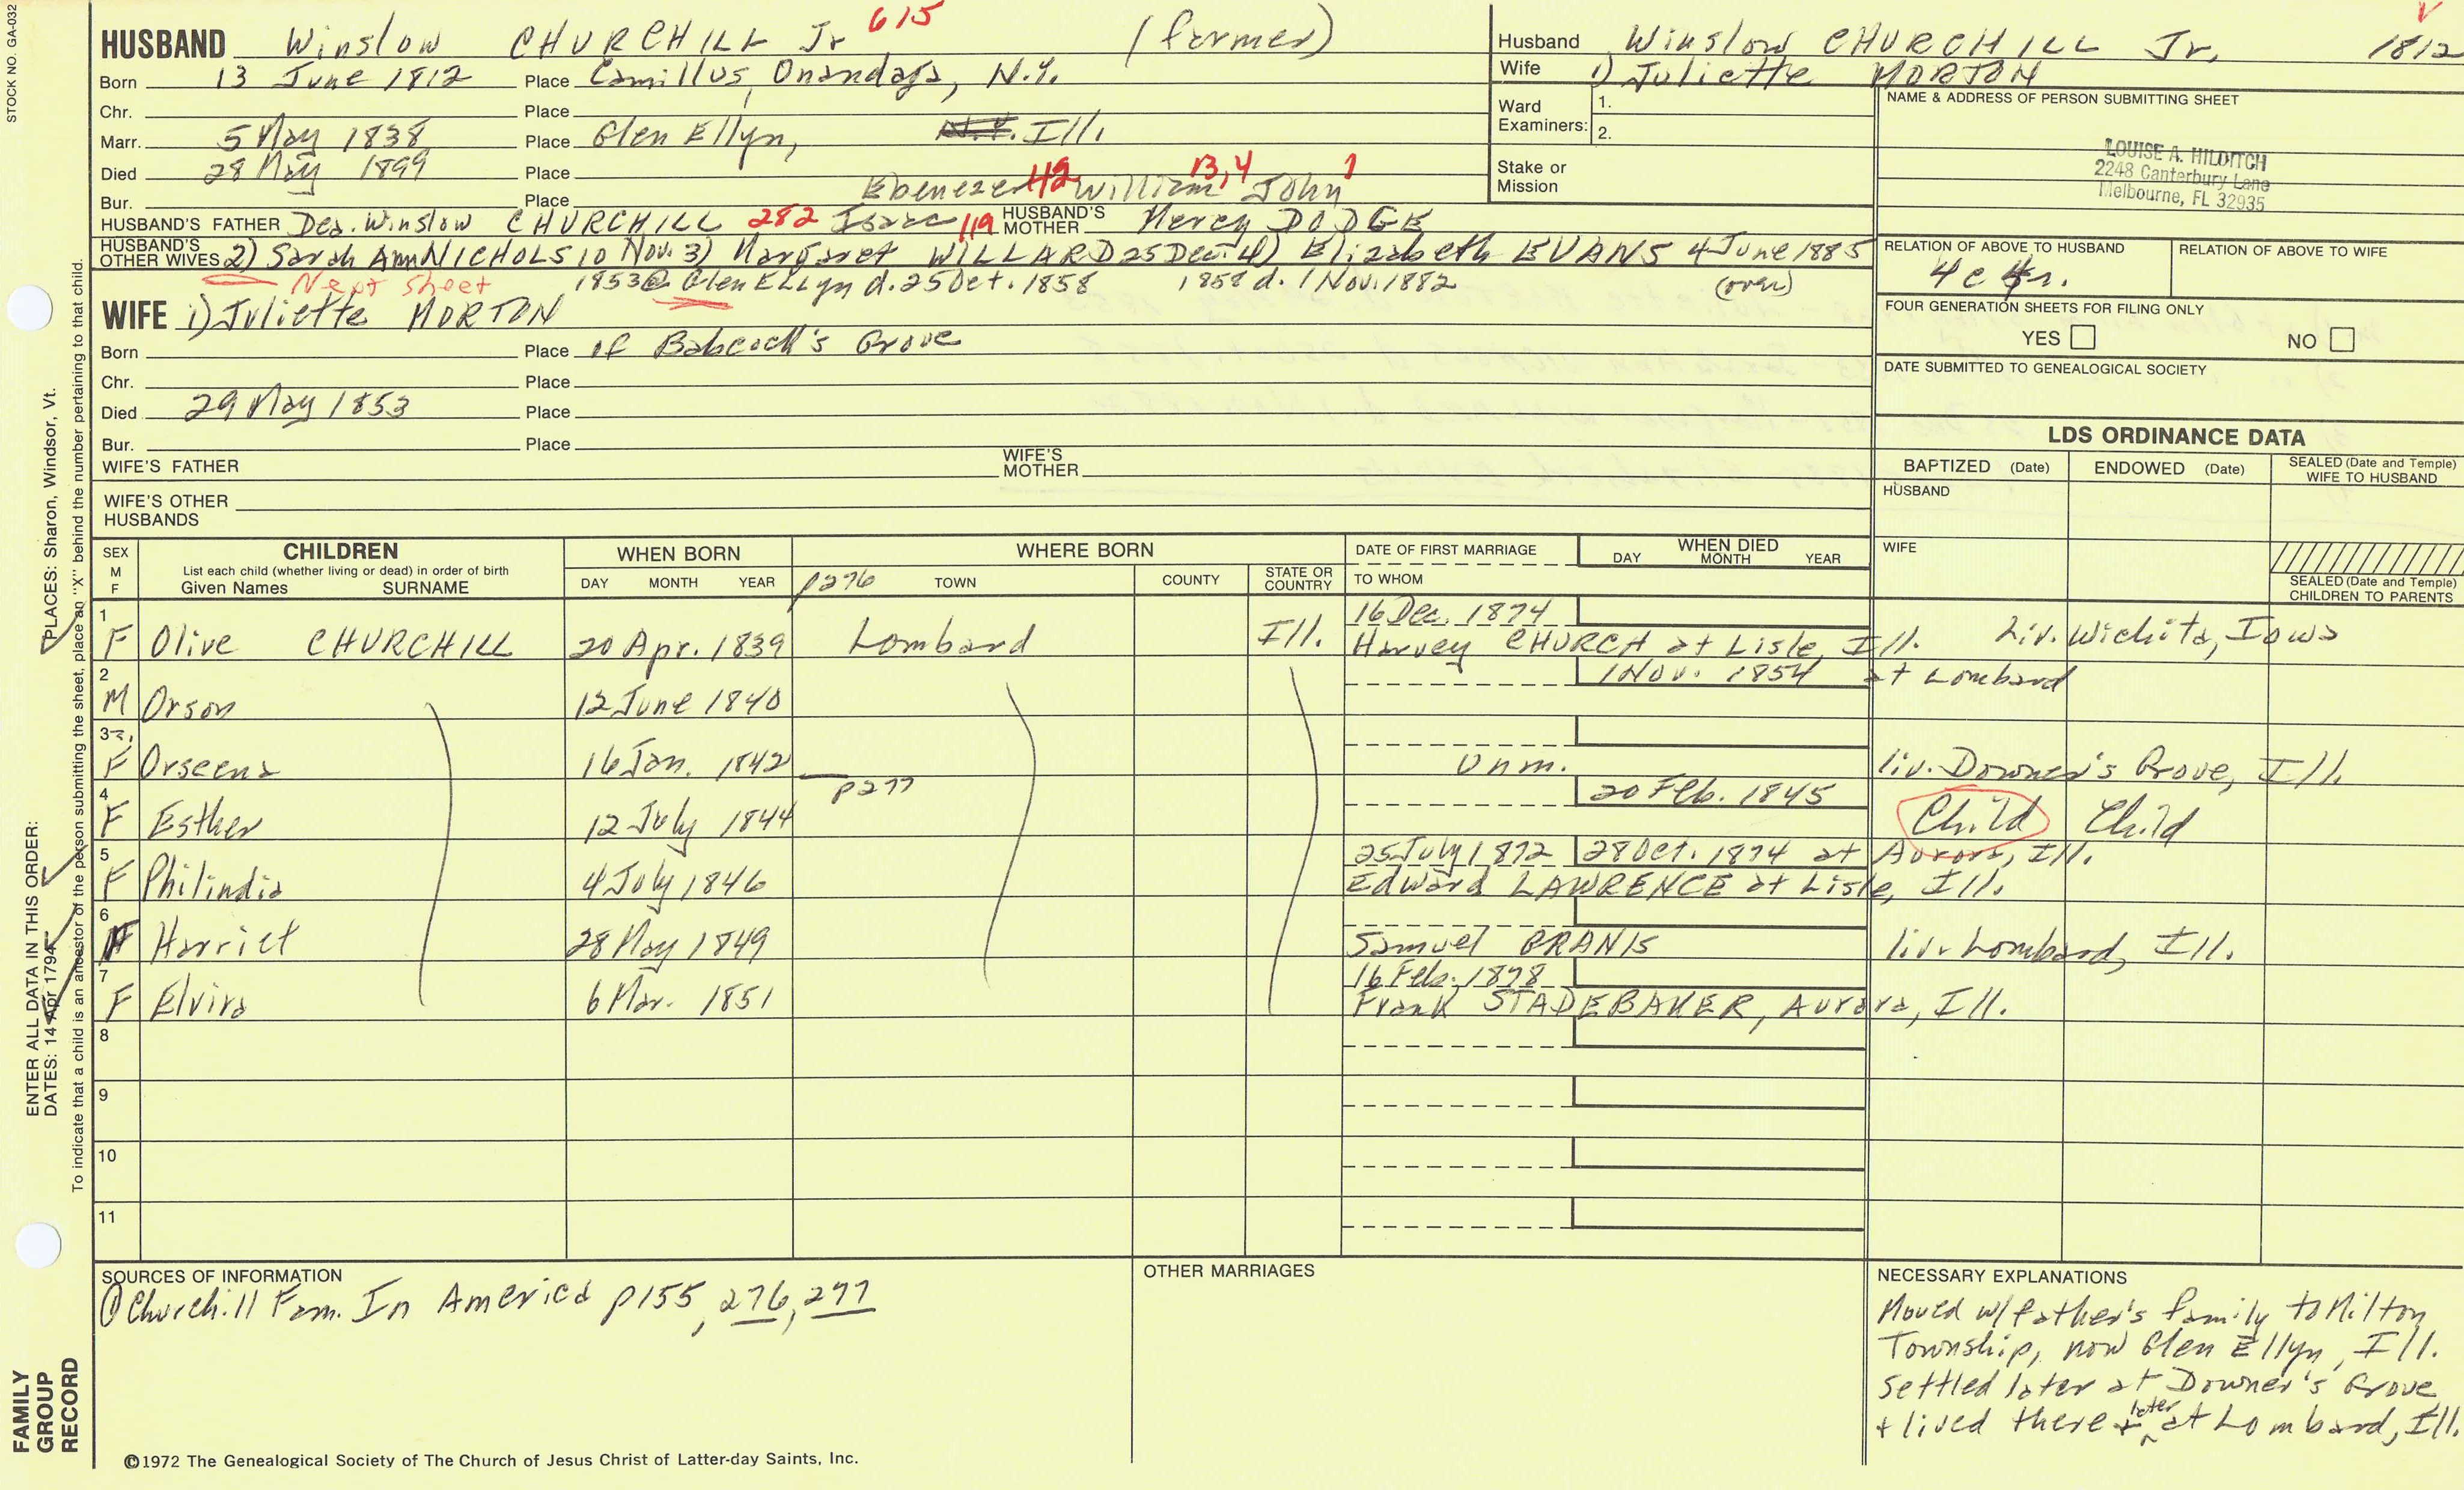 STOCK NO. GA-032
HUSBAND Winslow CHURCHILL Jr 615 (farmer)
Born 13 June 1812 Place Camillus, Onandaga, N.Y.
Chr. Place
Marr. 5 May 1838 Place Glen Ellyn, Ill.
Died 28 May 1899 Place
Bur. Place Ebenezer 42 William 13,4 John 1
HUSBAND'S FATHER Dea. Winslow CHURCHILL 282 Isaac 119 HUSBAND'S MOTHER Mercy DODGE
HUSBAND'S OTHER WIVES 2) Sarah Ann NICHOLS 10 Nov. 3) Margaret WILLARD 25 Dec. 4) Elizabeth EVANS 4 June 1885
Next sheet 1853 @ Glen Ellyn d. 25 Oct. 1858 1858 d. 1 Nov. 1882 (over)
WIFE 1) Juliette MORTON
Born Place of Babcock's Grove
Chr. Place
Died 29 May 1853 Place
Bur. Place
WIFE'S FATHER WIFE'S MOTHER
WIFE'S OTHER HUSBANDS
Husband Winslow CHURCHILL Jr, 1812
Wife 1) Juliette MORTON
Ward Examiners: 1.
2.
Stake or Mission
NAME & ADDRESS OF PERSON SUBMITTING SHEET
LOUISE A. HILDITCH
2248 Canterbury Lane
Melbourne, FL 32935
RELATION OF ABOVE TO HUSBAND RELATION OF ABOVE TO WIFE
4c 4r.
FOUR GENERATION SHEETS FOR FILING ONLY
YES NO
DATE SUBMITTED TO GENEALOGICAL SOCIETY
LDS ORDINANCE DATA
BAPTIZED (Date) ENDOWED (Date) SEALED (Date and Temple) WIFE TO HUSBAND
HUSBAND
WIFE
SEALED (Date and Temple) CHILDREN TO PARENTS
SEX M F
CHILDREN
List each child (whether living or dead) in order of birth
Given Names SURNAME
WHEN BORN
DAY MONTH YEAR
WHERE BORN
p276 TOWN COUNTY STATE OR COUNTRY
DATE OF FIRST MARRIAGE
TO WHOM
WHEN DIED
DAY MONTH YEAR
1 16 Dec. 1874
F Olive CHURCHILL 20 Apr. 1839 Lombard Ill. Harvey CHURCH at Lisle, Ill. Liv. Wichita, Iowa
2 1 Nov. 1854 at Lombard
M Orson 12 June 1840
3
F Orseena 16 Jan. 1842 Unm. liv. Downer's Grove, Ill.
4 p277 20 Feb. 1845
F Esther 12 July 1844 Child Child
5 25 July 1872 28 Oct. 1874 at Aurora, Ill.
F Philindia 4 July 1846 Edward LAWRENCE at Lisle, Ill.
6
F Harriet 28 May 1849 Samuel BRANIS liv. Lombard, Ill.
7 16 Feb. 1878
F Elvira 6 Mar. 1851 Frank STADEBAKER, Aurora, Ill.
8
9
10
11
SOURCES OF INFORMATION
① Churchill Fam. In America p155, 276, 277
OTHER MARRIAGES
NECESSARY EXPLANATIONS
Moved w/father's family to Milton
Township, now Glen Ellyn, Ill.
Settled later at Downer's Grove
+ lived there + later at Lombard, Ill.
©1972 The Genealogical Society of The Church of Jesus Christ of Latter-day Saints, Inc.
FAMILY GROUP RECORD
ENTER ALL DATA IN THIS ORDER:
DATES: 14 Apr 1794
PLACES: Sharon, Windsor, Vt.
To indicate that a child is an ancestor of the person submitting the sheet, place an "X" behind the number pertaining to that child.